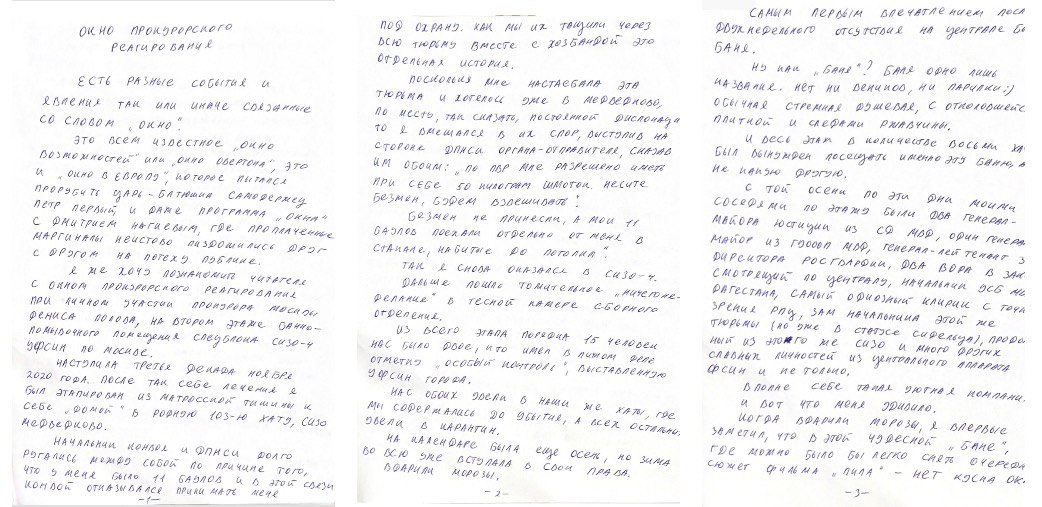 ОКНО ПРОКУРОРСКОГО
РЕАГИРОВАНИЯ
ЕСТЬ РАЗНЫЕ СОБЫТИЯ И
ЯВЛЕНИЯ ТАК ИЛИ ИНАЧЕ СВЯЗАННЫЕ
СО СЛОВОМ „ОКНО".
ЭТО ВСЕМ ИЗВЕСТНОЕ „ОКНО
ВОЗМОЖНОСТЕЙ" ИЛИ „ОКНО ОВЕРТОНА", ЭТО
И „ОКНО В ЕВРОПУ", КОТОРОЕ ПЫТАЛСЯ
ПРОРУБИТЬ ЦАРЬ-БАТЮШКА САМОДЕРЖЕЦ
ПЕТР ПЕРВЫЙ И ДАЖЕ ПРОГРАММА „ОКНА"
С ДМИТРИЕМ НАГИЕВЫМ, ГДЕ ПРОПЛАЧЕННЫЕ
МАРГИНАЛЫ НЕИСТОВО ПИЗДОШИЛИСЬ ДРУГ
С ДРУГОМ НА ПОТЕХУ ПУБЛИКЕ.
Я ЖЕ ХОЧУ ПОЗНАКОМИТЬ ЧИТАТЕЛЯ
С ОКНОМ ПРОКУРОРСКОГО РЕАГИРОВАНИЯ
ПРИ ЛИЧНОМ УЧАСТИИ ПРОКУРОРА МОСКВЫ
ДЕНИСА ПОПОВА, НА ВТОРОМ ЭТАЖЕ БАННО-
ПОМЫВОЧНОГО ПОМЕЩЕНИЯ СПЕЦБЛОКА СИЗО-4
УФСИН ПО МОСКВЕ.
НАСТУПИЛА ТРЕТЬЯ ДЕКАДА НОЯБРЯ
2020 ГОДА. ПОСЛЕ ТАК СЕБЕ ЛЕЧЕНИЯ Я
БЫЛ ЭТАПИРОВАН ИЗ МАТРОССКОЙ ТИШИНЫ К
СЕБЕ „ДОМОЙ" В РОДНУЮ 103-Ю ХАТУ, СИЗО
МЕДВЕДКОВО.
НАЧАЛЬНИК КОНВОЯ И ДПНСИ ДОЛГО
РУГАЛИСЬ МЕЖДУ СОБОЙ ПО ПРИЧИНЕ ТОГО,
ЧТО У МЕНЯ БЫЛО 11 БАУЛОВ И В ЭТОЙ СВЯЗИ
КОНВОЙ ОТКАЗЫВАЛСЯ ПРИНИМАТЬ МЕНЯ
-1-
ПОД ОХРАНУ. КАК МЫ ИХ ТАЩИЛИ ЧЕРЕЗ
ВСЮ ТЮРЬМУ ВМЕСТЕ С ХОЗБАНДОЙ ЭТО
ОТДЕЛЬНАЯ ИСТОРИЯ.
ПОСКОЛЬКУ МНЕ НАСТОЕБАЛА ЭТА
ТЮРЬМА И ХОТЕЛОСЬ УЖЕ В МЕДВЕДКОВО,
ПО МЕСТУ, ТАК СКАЗАТЬ, ПОСТОЯННОЙ ДИСЛОКАЦИИ
ТО Я ВМЕШАЛСЯ В ИХ СПОР, ВЫСТУПИВ НА
СТОРОНЕ ДПНСИ ОРГАНА-ОТПРАВИТЕЛЯ, СКАЗАВ
ИМ ОБОИМ: „ПО ПВР МНЕ РАЗРЕШЕНО ИМЕТЬ
ПРИ СЕБЕ 50 КИЛОГРАМ ШМОТОК. НЕСИТЕ
БЕЗМЕН, БУДЕМ ВЗВЕШИВАТЬ".
БЕЗМЕН НЕ ПРИНЕСЛИ, А МОИ 11
БАУЛОВ ПОЕХАЛИ ОТДЕЛЬНО ОТ МЕНЯ В
СТАКАНЕ, НАБИТКЕ ДО ПОТОЛКА".
ТАК Я СНОВА ОКАЗАЛСЯ В СИЗО-4.
ДАЛЬШЕ ПОШЛО ТОМИТЕЛЬНОЕ „НИЧЕГОНЕ-
ДЕЛАНИЕ" В ТЕСНОЙ КАМЕРЕ СБОРНОГО
ОТДЕЛЕНИЯ.
ИЗ ВСЕГО ЭТАПА ПОРЯДКА 15 ЧЕЛОВЕК
НАС БЫЛО ДВОЕ, КТО ИМЕЛ В ЛИЧНОМ ДЕЛЕ
ОТМЕТКУ „ОСОБЫЙ КОНТРОЛЬ", ВЫСТАВЛЕННУЮ
УФСИН ГОРОДА.
НАС ОБОИХ УВЕЛИ В НАШИ ЖЕ ХАТЫ, ГДЕ
МЫ СОДЕРЖАЛИСЬ ДО УБЫТИЯ, А ВСЕХ ОСТАЛЬНЫХ
УВЕЛИ В КАРАНТИН.
НА КАЛЕНДАРЕ БЫЛА ЕЩЕ ОСЕНЬ, НО ЗИМА
ВО ВСЮ УЖЕ ВСТУПАЛА В СВОИ ПРАВА.
ВДАРИЛИ МОРОЗЫ.
-2-
САМЫМ ПЕРВЫМ ВПЕЧАТЛЕНИЕМ ПОСЛ
ДВУХНЕДЕЛЬНОГО ОТСУТСТВИЯ НА ЦЕНТРАЛЕ БЫ
БАНЯ.
НУ КАК „БАНЯ"? БАНЯ ОДНО ЛИШЬ
НАЗВАНИЕ. НЕТ НИ ВЕНИКОВ, НИ ПАРИЛКИ:)
ОБЫЧНАЯ СТРЕМНАЯ ДУШЕВАЯ, С ОТКОЛОВШЕЙСЯ
ПЛИТКОЙ И СЛЕДАМИ РЖАВЧИНЫ.
И ВЕСЬ ЭТАЖ В КОЛИЧЕСТВЕ ВОСЬМИ ХА
БЫЛ ВЫНУЖДЕН ПОСЕЩАТЬ ИМЕННО ЭТУ БАНЮ, А
НЕ КАКУЮ ДРУГУЮ.
С ТОЙ ОСЕНИ ПО ЭТИ ДНИ МОИМИ
СОСЕДЯМИ ПО ЭТАЖУ БЫЛИ ДВА ГЕНЕРАЛ-
МАЙОРА ЮСТИЦИИ ИЗ СД МВД, ОДИН ГЕНЕРАЛ
МАЙОР ИЗ ГУОООП МВД, ГЕНЕРАЛ-ЛЕЙТЕНАНТ З
ДИРЕКТОРА РОСГВАРДИИ, ДВА ВОРА В ЗАК
СМОТРЯЩИЙ ПО ЦЕНТРАЛУ, НАЧАЛЬНИК УСБ МВ
ДАГЕСТАНА, САМЫЙ ОДИОЗНЫЙ КЛИРИК С ТОЧК
ЗРЕНИЯ РПЦ, ЗАМ НАЧАЛЬНИКА ЭТОЙ ЖЕ
ТЮРЬМЫ (НО УЖЕ В СТАТУСЕ СИДЕЛЬЦА), ПРОДО
НЫЙ ИЗ ЭТОГО ЖЕ СИЗО И МНОГО ДРУГИХ
СЛАВНЫХ ЛИЧНОСТЕЙ ИЗ ЦЕНТРАЛЬНОГО АППАРАТА
ФСИН И НЕ ТОЛЬКО.
ВПОЛНЕ СЕБЕ ТАКАЯ УЮТНАЯ КОМПАНИ
И ВОТ ЧТО МЕНЯ УДИВИЛО.
КОГДА ВДАРИЛИ МОРОЗЫ, Я ВПЕРВЫЕ
ЗАМЕТИЛ, ЧТО В ЭТОЙ ЧУДЕСНОЙ „БАНЕ",
ГДЕ МОЖНО БЫЛО БЫ ЛЕГКО СНЯТЬ ОЧЕРЕДН
СЮЖЕТ ФИЛЬМА „ПИЛА" - НЕТ КУСКА ОК
-3-